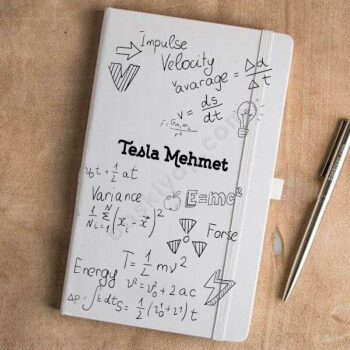 Impulse
Velocity
v avarage = Δd / Δt
v = ds / dt
F = G m₁ m₂ / r²
Tesla Mehmet
v₀t + 1/2 at
Variance
E=mc²
1/N N Σ i=1 (xᵢ - x)²
Forse
T = 1/2 mv²
Energy
v² = v₀² + 2ac
Δp = ∫ t dt S = 1/2 (v₀ + v₁) t